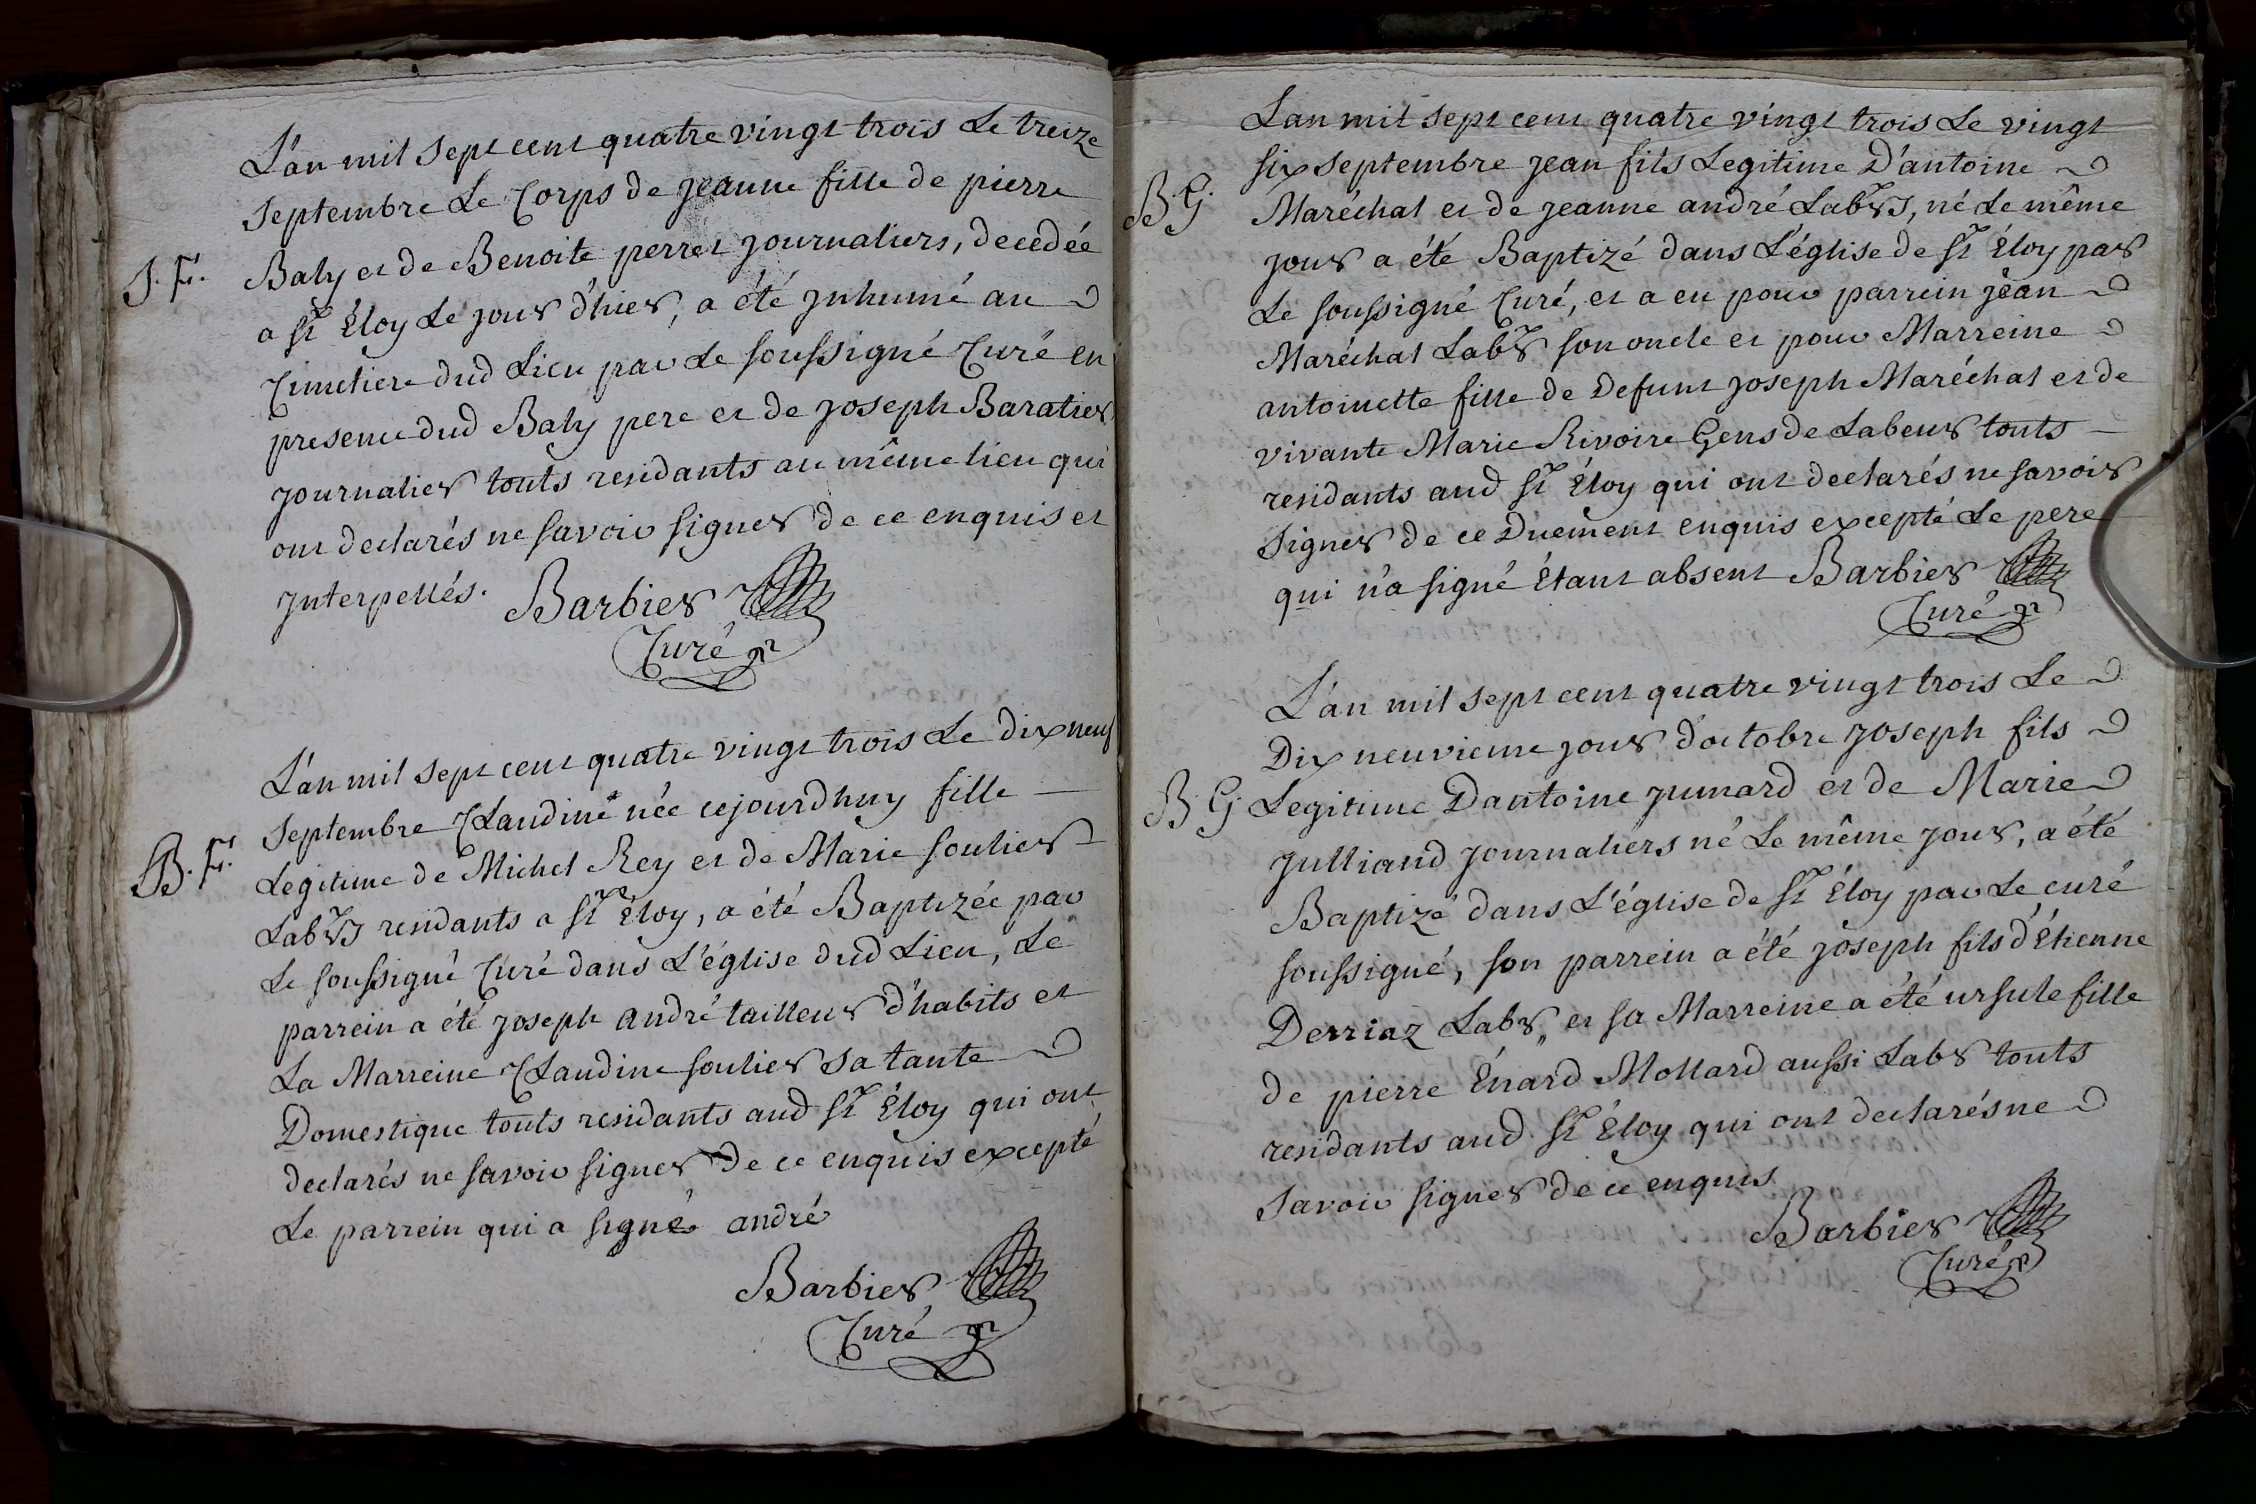 L'an mil sept cent quatre vingt trois Le treize
septembre Le Corps de jeanne fille de pierre
S. F. Baly et de Benoite perret journaliers, decedée
a St Éloy Le jour d'hier, a été jnhumé au
Cimetiere dud Lieu par Le soussigné Curé en
presence dud Baly pere et de joseph Baratier
journalier touts residants au même lieu qui
ont declarés ne savoir signer de ce enquis et
jnterpellés. Barbier
Curé
L'an mil sept cent quatre vingt trois Le dix neuf
septembre Claudine née cejourdhuy fille
B. F. Legitime de Michel Rey et de Marie soulier
Labrs residants a St Éloy, a été Baptizée par
Le soussigné Curé dans L'église dud Lieu, Le
parrein a été joseph andré tailleur d'habits et
La Marreine Claudine soulier sa tante
Domestique touts residants aud St Éloy qui ont
declarés ne savoir signer de ce enquis excepté
Le parrein qui a signé andré
Barbier
Curé
Lan mil sept cent quatre vingt trois Le vingt
six septembre jean fils Legitime D'antoine
B. G. Maréchal et de jeanne andré Labrs, né Le même
jour a été Baptizé dans L'église de St Éloy par
Le soussigné Curé, et a eu pour parrein jean
Maréchal Labr son oncle et pour Marreine
antoinette fille de Defunt joseph Maréchal et de
vivante Marie Rivoire Gens de Labeur touts
residants aud St Éloy qui ont declarés ne savoir
signer de ce Duement enquis excepté Le pere
qui n'a signé Étant absent Barbier
Curé
L'an mil sept cent quatre vingt trois Le
Dix neuvieme jour d'octobre joseph fils
B. G. Legitime Dantoine junard et de Marie
julliand journaliers né Le même jour, a été
Baptizé dans L'église de St Éloy par Le curé
soussigné, son parrein a été joseph fils d'Étienne
Derriaz Labr, et sa Marreine a été ursule fille
de pierre Énard Mollard aussi Labr touts
residants aud St Éloy qui ont declarés ne
savoir signer de ce enquis
Barbier
Curé